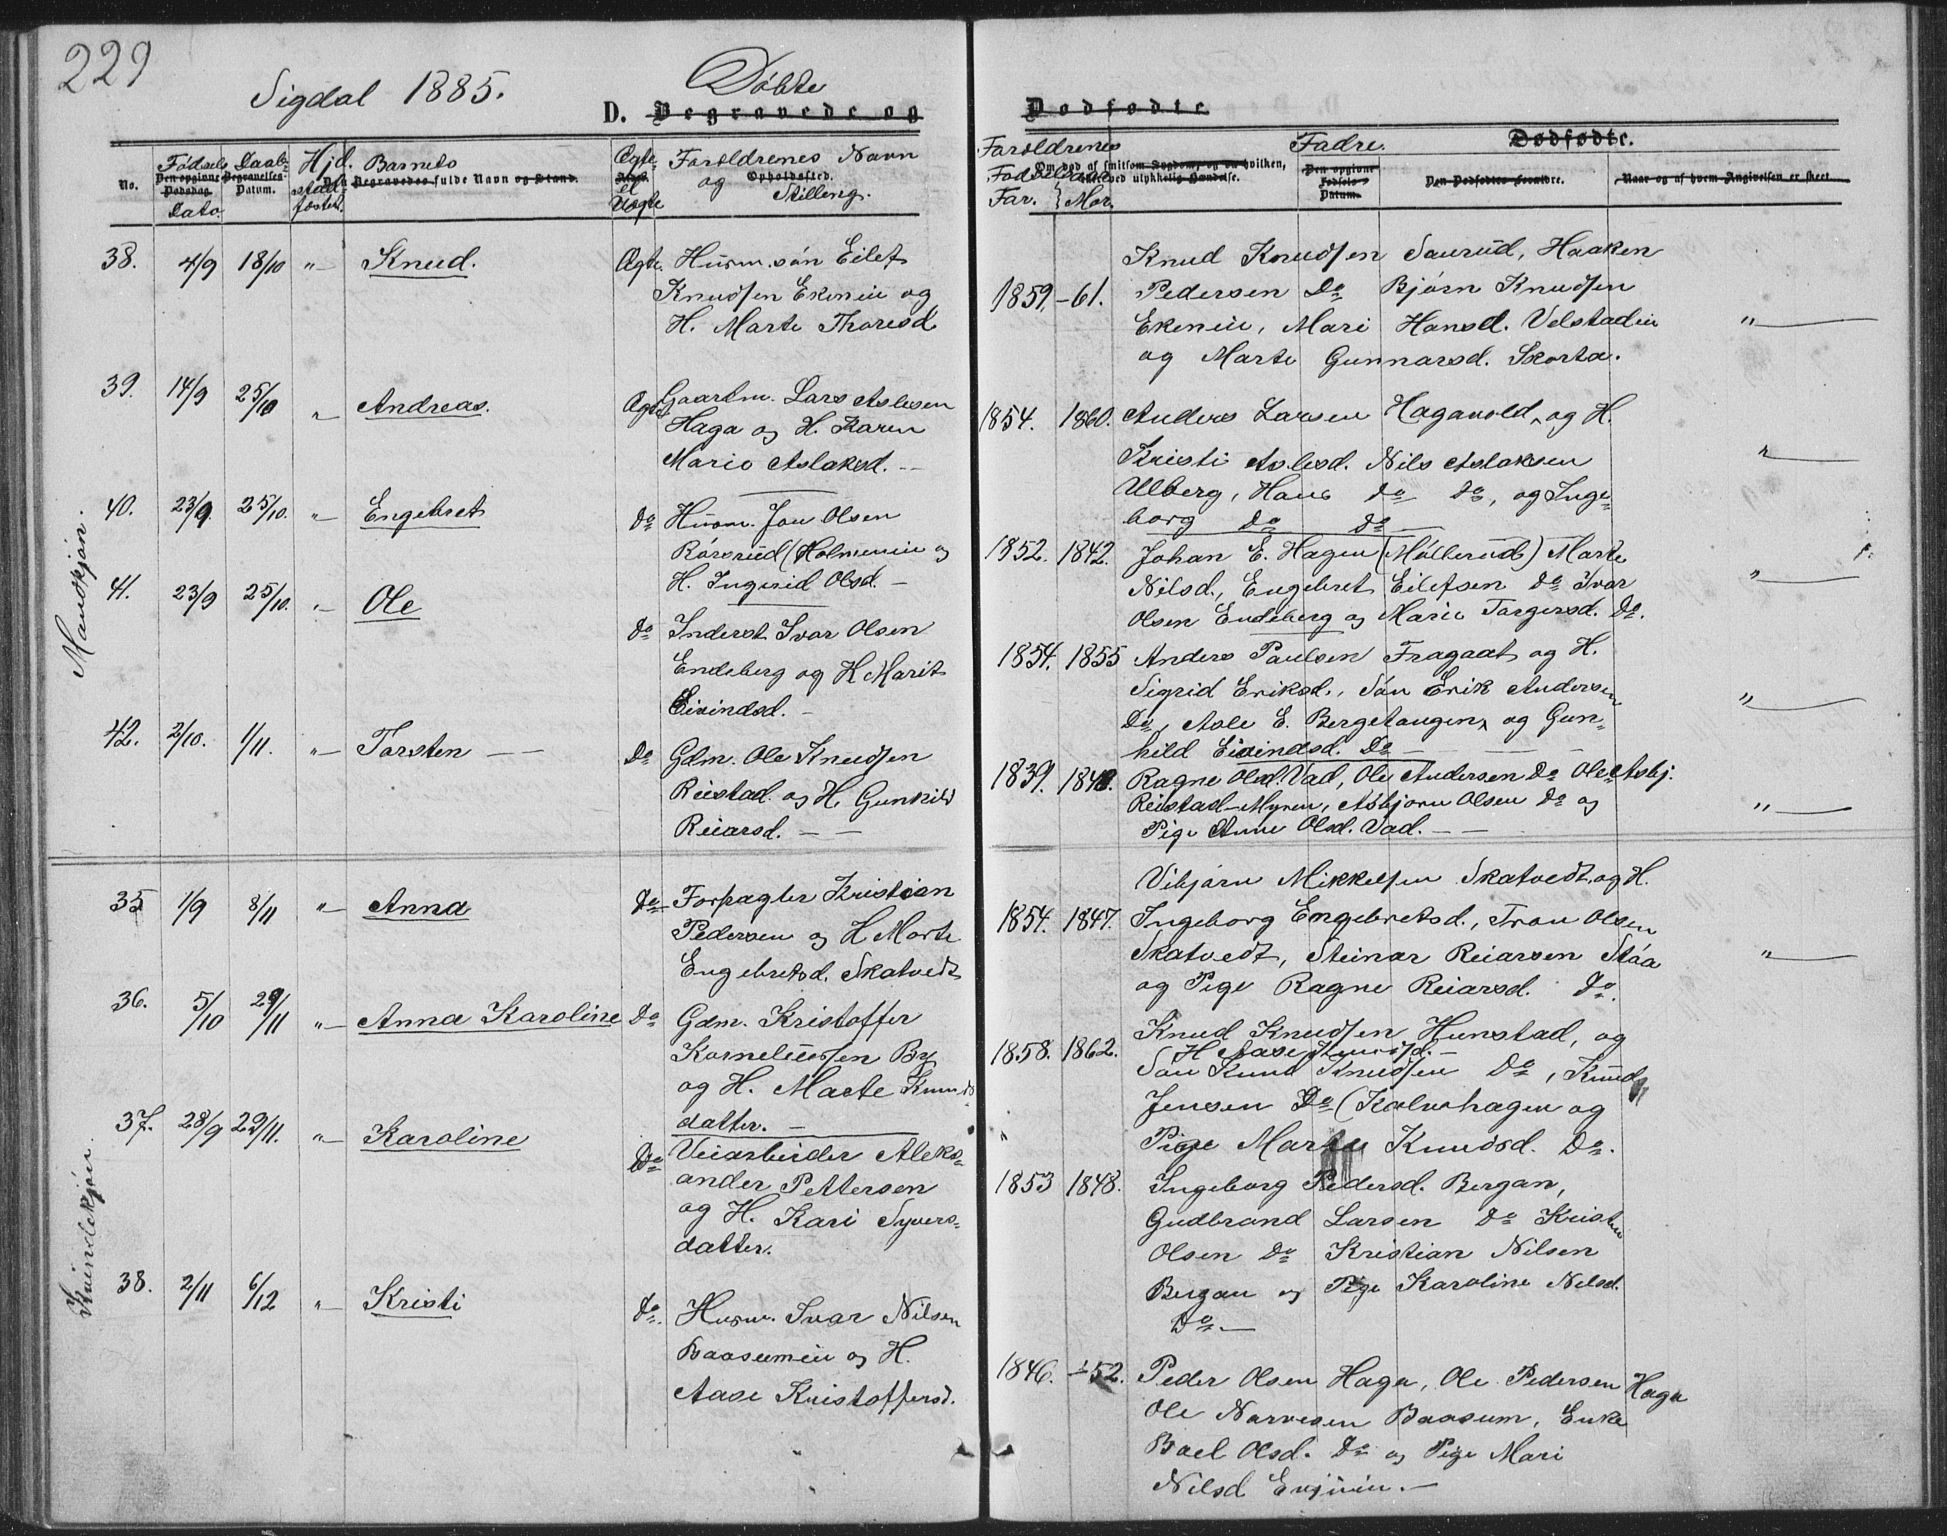 229
Sigdal 1885.
Döbte
D. Begravede og
Dødfødte.
No.
Födsels
Den opgivne Dødsdag.
Dato
Daabs
Begravelses-Datum.
Hjd.
stad
fæstet.
Barnets
Den Begravedes fulde Navn og Stand.
Ægte
el
Uægte
Forældrenes Navn
og Opholdssted.
Stilling.
Forældrenes
Om død af smitsom Sygdom, og da hvilken,
Födselsaar
eller ved ulykkelig Hændelse.
Far. Mor.
Fadre.
Den opgivne Fødsels-Datum.
Dødfødte.
Den Dødfødtes Forældre.
Naar og af hvem Angivelsen er skeet.
Mandkjön.
38. 4/9 18/10 " Knud. Ægte. Husm. sön Eilef
Knudsen Ekeniu og
H. Marte Thoresd.
1859. -61. Knud Knudsen Saurud, Haaken
Pedersen Do Bjørn Knudsen
Ekeniu, Mari Hansd. Velstadiu
og Marte Gunnarsd. Skorta.
"
39. 14/9 25/10 " Andreas. Ægte Gaardm. Lars Aslesen
Haga og H. Karen
Marie Aslaksd. -
1854. 1860. Anders Larsen Hagavold, og H.
Kristi Aslesd. Nils Aslaksen
Ulberg, Hans do do, og Inge-
borg do do
"
40. 23/9. 25/10. " Engebret do Husm. Jon Olsen
Rörsrud (Holmeniu og
H. Ingerid Olsd. -
1852. 1842. Johan E. Hagen (Möllerud) Marte
Nilsd., Engebret Eilefsen do Ivar
Olsen Endeberg og Marie Torgersd. Do.
"
41. 23/9 25/10. " Ole do Inderst Ivar Olsen
Endeberg og H Marit
Eivindsd. -
1854. 1855 Anders Paulsen Fragaat og H.
Sigrid Eriksd., Sön Erik Andersen
Do, Asle E. Bergetangen, og Gun-
hild Eivindsd. Do
"
42. 2/10. 1/11. " Torsten do Gdm. Ole Knudsen
Reistad og H. Gunhild
Reiarsd. - -
1839. 1848. Ragne Olsd. Vad, Ole Andersen Do Ole Asbj.
Reistad-Myren, Asbjorn Olsen do og
Pige Anne Olsd. Vad. - -
"
Kvindekjön.
35 1/9 8/11 " Anna do Forpagter Kristian
Pedersen og H Marte
Engebretsd. Skatvedt
1854. 1847. Vibjørn Mikkelsen Skatvedt, og H.
Ingeborg Engebretsd., Tron Olsen
Skatvedt, Steinar Reiarsen Stáa
og Pige Ragne Reiarsd. do.
"
36. 5/10 29/11 " Anna Karoline do Gdm. Kristoffer
Korneliussen By
og H. Marte Knuds
datter. -
1858. 1862. Knud Knudsen Hunstad, og
H Aase Knudsd. -
Sön Knud Knudsen Do, Knud
Jensen Do (Kalvehagen og
Pige Marte Knudsd. Do.
"
37. 28/9 29/11. " Karoline do Veiarbeider Aleks-
ander Pettersen
og H. Kari Syvers-
datter.
1853 1848. Ingeborg Pedersd. Bergan,
Gudbrand Larsen do Kristen
Olsen do Kristian Nilsen
Bergan og Pige Karoline Nilsd.
Do. -
38. 2/11 6/12 " Kristi do. Husm. Ivar Nilsen
Baasumeiu og H.
Aase Kristoffersd.
1846. -52. Peder Olsen Haga, Ole Pedersen Haga
Ole Narvesen Baasum, Enke
Boel Olsd. do og Pige Mari
Nilsd